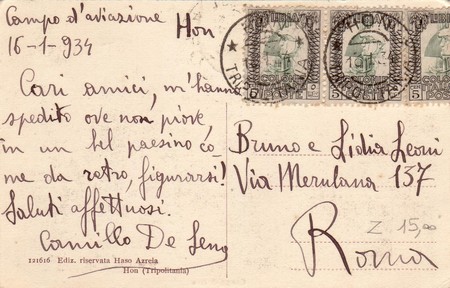 Campo d'aviazione
Hon
16-1-934
Cari amici, m'hanno
spedito ove non piove,
in un bel paesino co-
me da retro, figurarsi!
Saluti affettuosi.
Camillo De Sena
121616 Ediz. riservata Haso Azrela
Hon (Tripolitania)
HON
TRIPOLITANIA
Bruno e Lidia Leoni
Via Merulana 137
Z 15,00
Roma